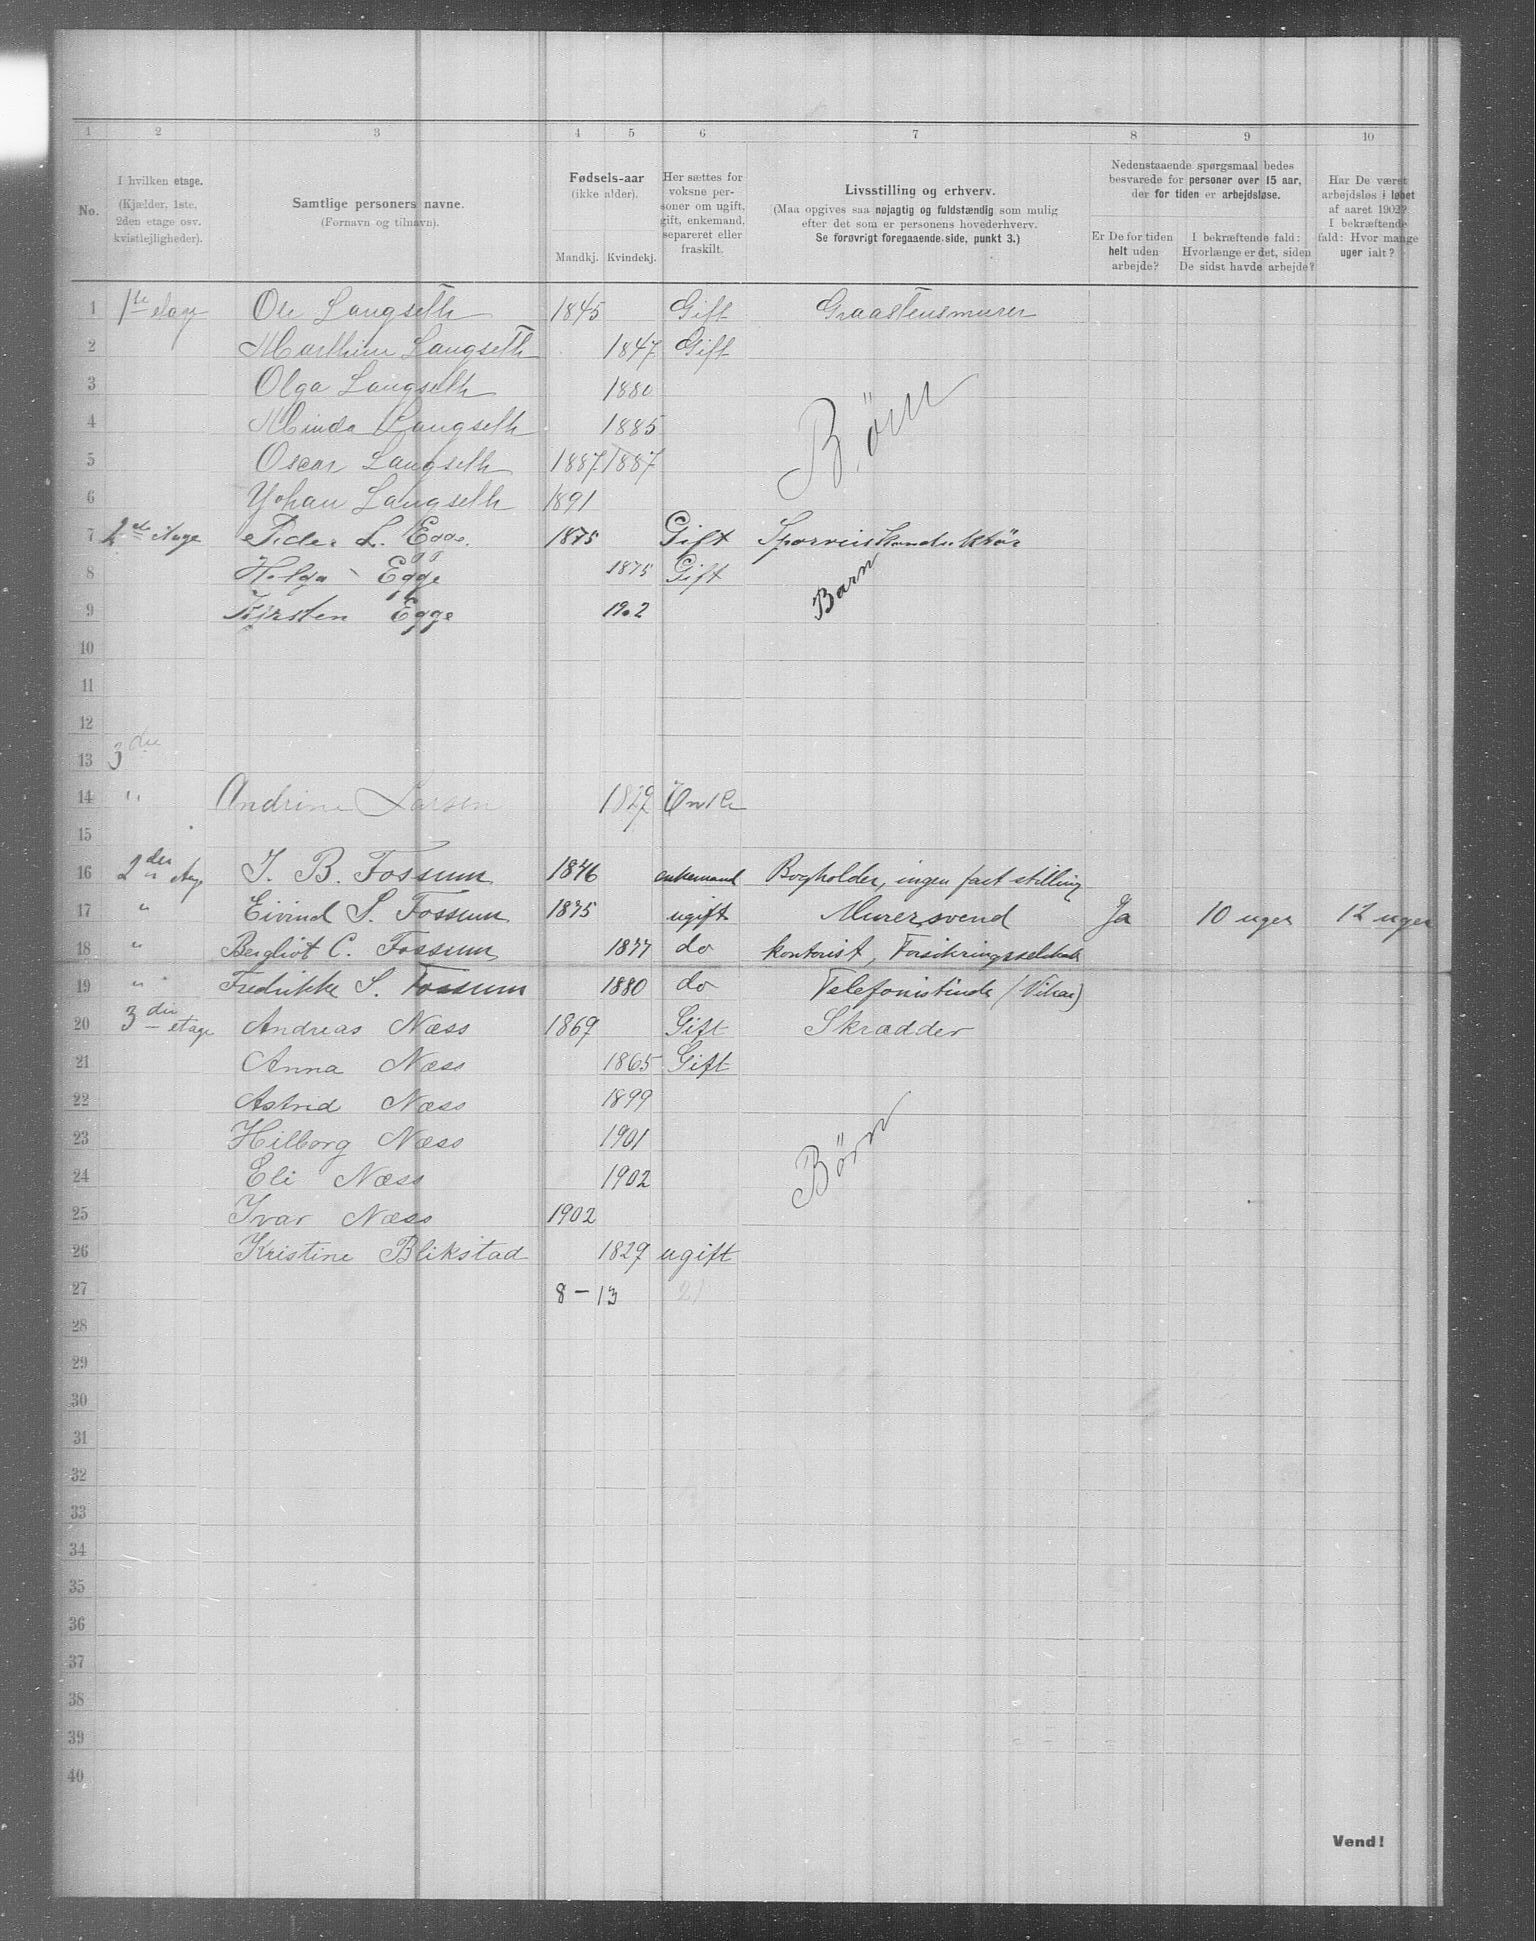 1 2 3 4 5 6 7 8 9 10
No.
I hvilken etage.
(Kjælder, 1ste,
2den etage osv.
kvistlejligheder).
Samtlige personers navne.
(Fornavn og tilnavn).
Fødsels-aar
(ikke alder).
Mandkj. Kvindekj.
Her sættes for
voksne per-
soner om ugift,
gift, enkemand,
separeret eller
fraskilt.
Livsstilling og erhverv.
(Maa opgives saa nøjagtig og fuldstændig som mulig
efter det som er personens hovederhverv.
Se forøvrigt foregaaende side, punkt 3.)
Nedenstaaende spørgsmaal bedes
besvarede for personer over 15 aar,
der for tiden er arbejdsløse.
Er De for tiden
helt uden
arbejde?
I bekræftende fald:
Hvorlænge er det, siden
De sidst havde arbejde?
Har De været
arbejdsløs i løbet
af aaret 1902?
I bekræftende
fald: Hvor mange
uger ialt?
1 1ste etage Ole Langseth 1845 Gift Graastensmurer
2 Marthine Langseth 1847 Gift
3 Olga Langseth 1880
4 Minda Langseth 1885
Børn
5 Oscar Langseth 1887 1887
6 Yohan Langseth 1891
7 2de Etage Peder L. Egge. 1875 Gift Sporveiskonduktör
8 Helga Egge 1875 Gift
9 Kirsten Egge 1902 Barn
10
11
12
13 3die
14 " Andrine Larsen 1829 Enke
15
16 2den etage J. B. Fossum 1846 enkemand Bogholder, ingen fast stilling
17 " Eivind S. Fossum 1875 ugift Murersvend Ja 10 uger 12 uger
18 " Bergliot C. Fossum 1877 do kontorist, Forsikringsselskab
19 " Fredrikke S. Fossum 1880 do Telefonistinde (Vikar)
20 3die etage Andreas Næss 1869 Gift Skrædder
21 Anna Næss 1865 Gift
22 Astrid Næss 1899
23 Hilborg Næss 1901
Børn
24 Eli Næss 1902
25 Ivar Næss 1902
26 Kristine Blikstad 1829 ugift
27 8 - 13 21
28
29
30
31
32
33
34
35
36
37
38
39
40
Vend!